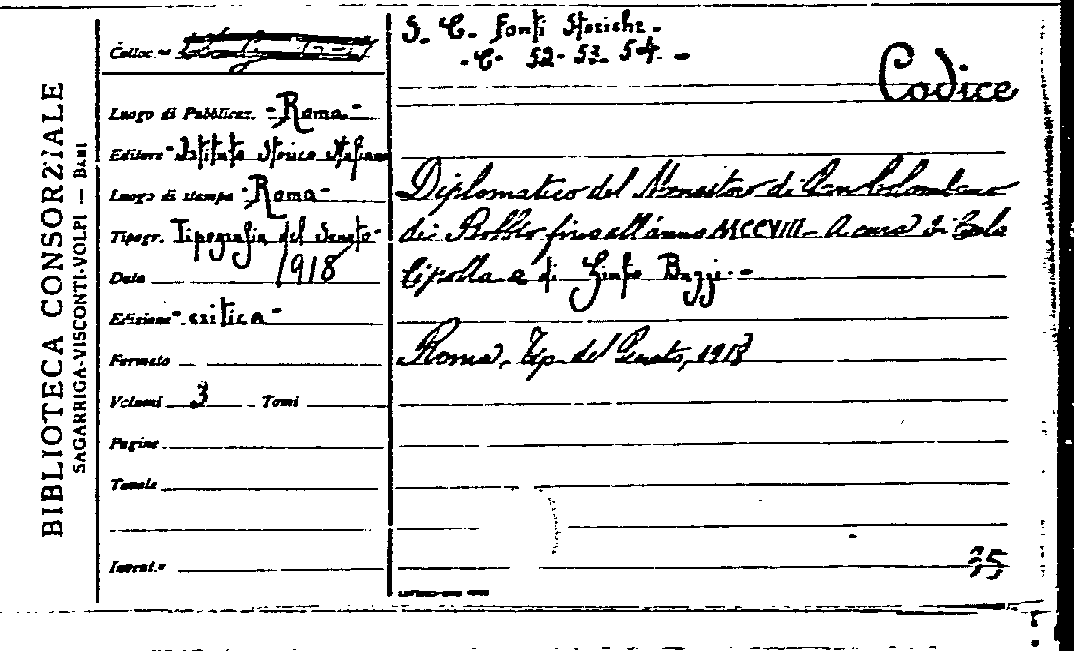 BIBLIOTECA CONSORZIALE
SAGARRIGA-VISCONTI-VOLPI — BARI
Colloc.
Luogo di Pubblicaz. - Roma -
Editore - Istituto Storico Italiano
Luogo di stampa - Roma -
Tipogr. Tipografia del Senato -
Data 1918
Edizione - critica -
Formato
Volumi 3 Tomi
Pagine
Tavole
Invent.
S. C. Fonti Storiche -
- C. 52 - 53 - 54 -
Codice
Diplomatico del Monastero di San Colombano
di Bobbio fino all'anno MCCVIII - A cura di Carlo
Cipolla e di Buzzi -
Roma, Tip. del Senato, 1918
35